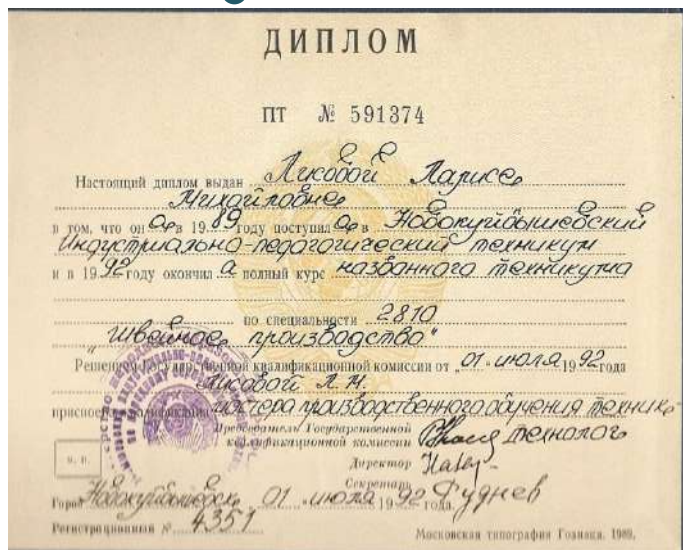 ДИПЛОМ
ПТ № 591374
Настоящий диплом выдан Ликовой Ларисе
Михайловне
в том, что он а в 1989 году поступил а в Новокуйбышевский
Индустриально-педагогический техникум
и в 1992 году окончил а полный курс названного техникума
по специальности 2810
"Швейное производство"
Решением Государственной квалификационной комиссии от „01" июля 1992 года
Ликовой Л.М.
присвоена квалификация мастера производственного обучения техник-
Председатель Государственной
квалификационной комиссии технолог
Директор
Секретарь Руднев
Город Новокуйбышевск, 01 июля 1992 года.
Регистрационный № 4351
Московская типография Гознака. 1989.